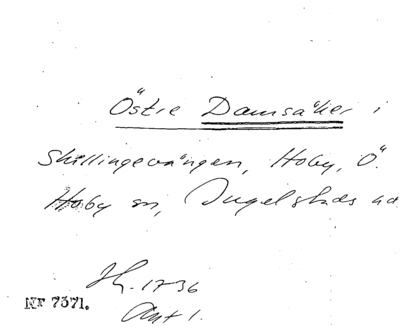 Östre Damsåker i
Skillingevången, Hoby, Ö.
Hoby sn, Ingelstads hd
1736
Akt 1.
NF 7371.